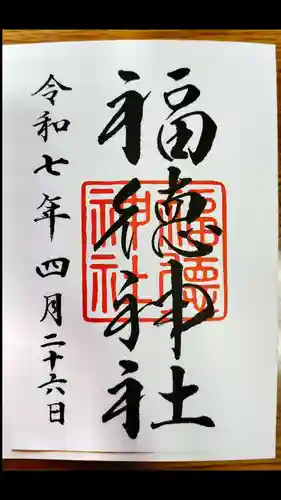 福徳神社
福徳神社
令和七年四月二十六日